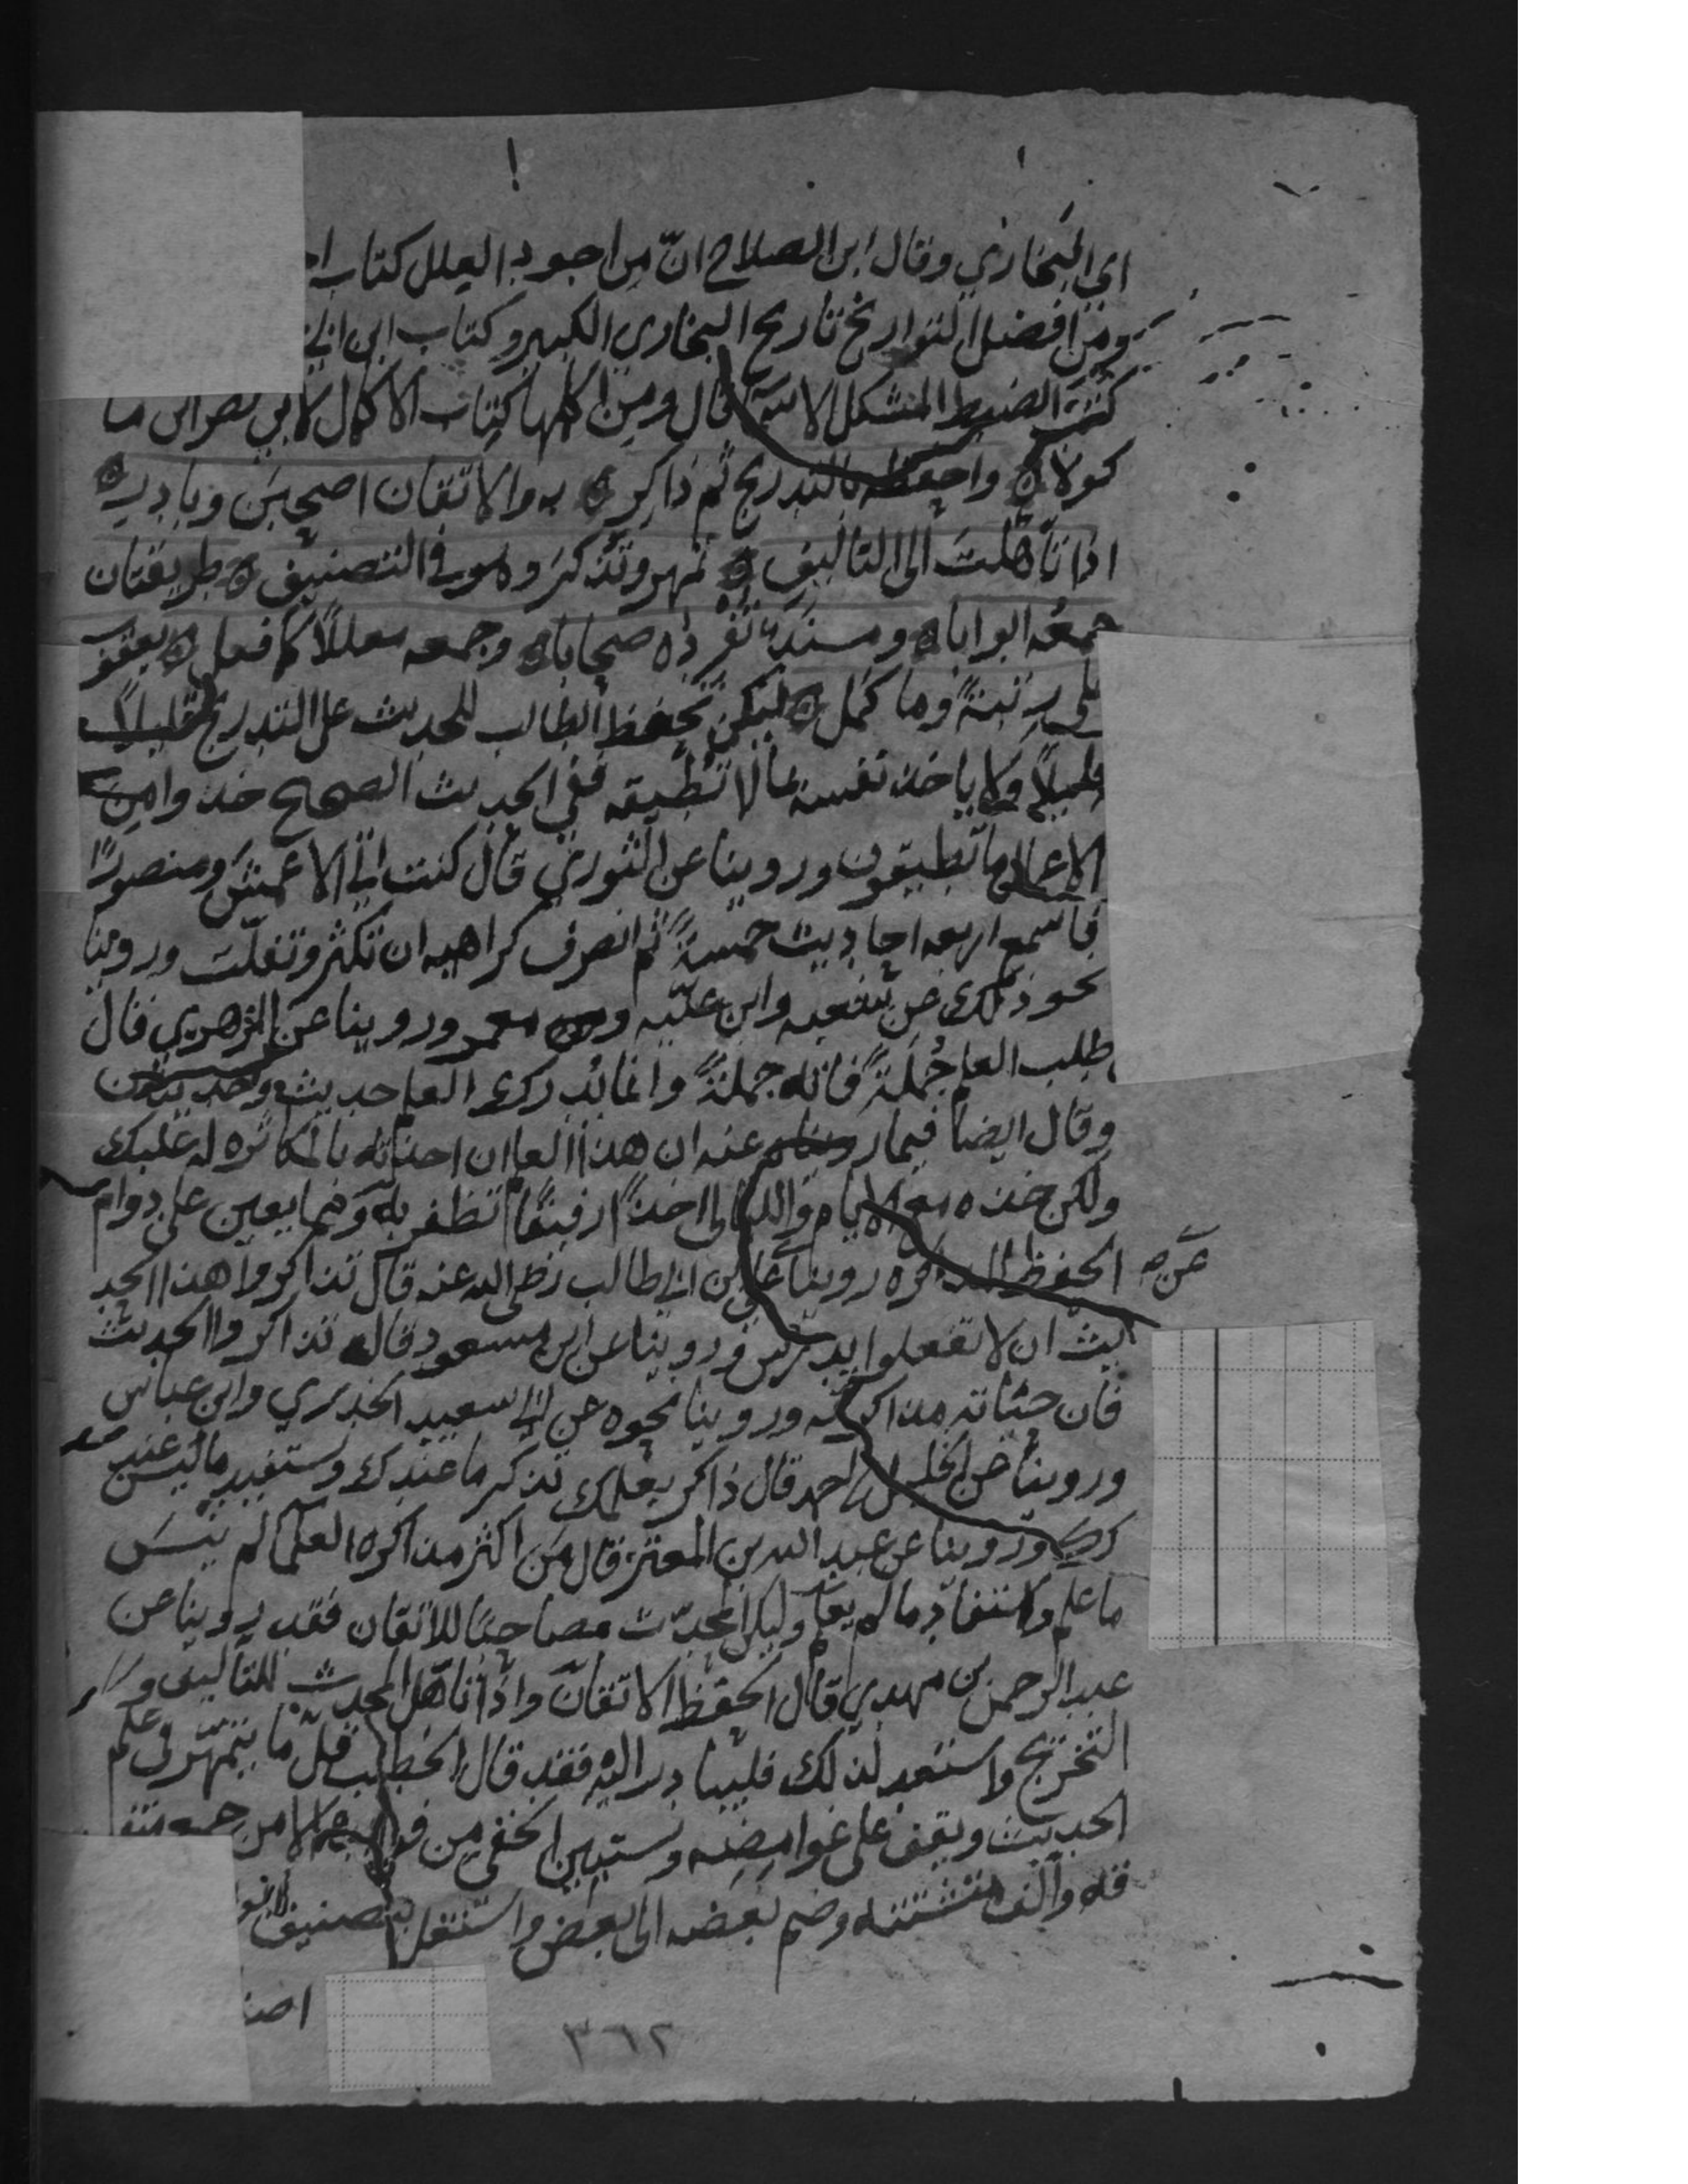 اي البخاري وقال ابن الصلاح انّ من اجود العلل كتاب
ومن افضل التواريخ تاريخ البخاري الكبير وكتاب ابن ابي
كتب الضبط المشكل الاسما قال ومن اكملها كتاب الاكمال لابي نصر ابن ما
كولا ه واحفظه بالتدريج ثم ذاكر ه به والاتقان اصحبن وبادر ه
اذا تأهلت الى التاليف ه تمهر وتذكر وهو في التصنيف ه طريقتان
جمعه ابوابا ه ومسندا تفرده صحابا ه وجمعه معللا كما فعل ه يعقوب
على رتبة وما كمل ه ليكن تحفظ الطالب للحديث على التدريج قليلا
قليلا ولا ياخذ نفسه بما لا تطيقه ففي الحديث الصحيح خذوا من
الاعمال ما تطيقون وروينا عن الثوري قال كنت اتي الاعمش ومنصورا
فاسمع اربعه احاديث خمسة ثم انصرف كراهيه ان تكثر وتفلت وروينا
نحو ذلك عن شعبه وابن عليه ومعمر وروينا عن الزهري قال
طلب العلم جُملة فاته جملة وانما يدرك العلم حديث وحديثين
وقال ايضا فيما رويناه عنه ان هذا العلم ان اخذته بالمكاثره له غلبك
ولكن خذه مع الايام والليالى اخذا رفيقا تظفر به ومما يعين على دوام
الحفظ المذاكره روينا عن علي بن ابي طالب رضى الله عنه قال تذاكروا هذا الحد
يث ان لا تفعلوا يدرس وروينا عن ابن مسعود قال تذاكروا الحديث
فان حياته مذاكرته وروينا نحوه عن ابي سعيد الخدري وابن عباس
وروينا عن الخليل بن احمد قال ذاكر بعلمك تذكر ما عندك وتستفيد ما ليس عند
ك وروينا عن عبد الله بن المعتز قال من اكثر مذاكره العلما لم ينس
ما علم واستفاد ما لم يعلم وليكن المحدّث مصاحبا للاتقان فقد روينا عن
عبد الرحمن بن مهدي قال الحفظ الاتقان واذا تأهل المحدث للتاليف و
التخريج واستعد لذلك فليبادر اليه فقد قال الخطيب قلّ ما يتمهّر في علم
الحديث ويقف على غوامضه ويستبين الخفي من فوايده الا من جمع متفر
قه والف متشتته وضم بعضه الى بعض واشتغل بتصنيف
٣٦٢